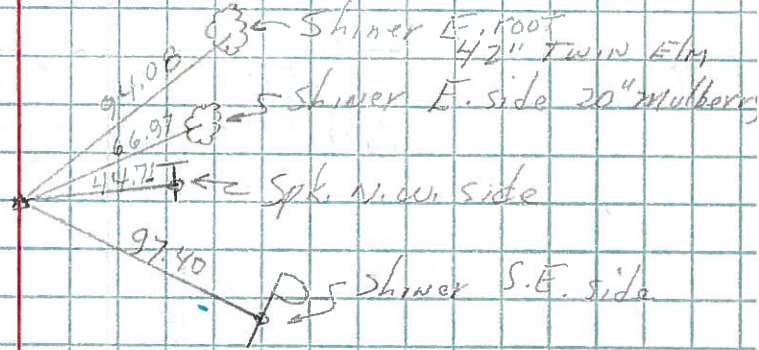 Shiner E. root
42" Twin Elm
94.08
Shiner E. side 20" Mulberry
66.97
44.71
Spk. N.W. side
97.40
Shiner S.E. side